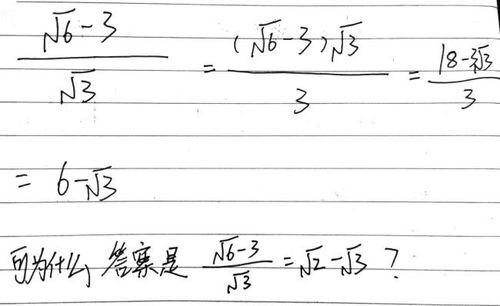 (√6-3)/√3 = (√6-3)√3/3 = (18-3√3)/3
= 6-√3
可为什么 答案是 (√6-3)/√3 = √2-√3 ?